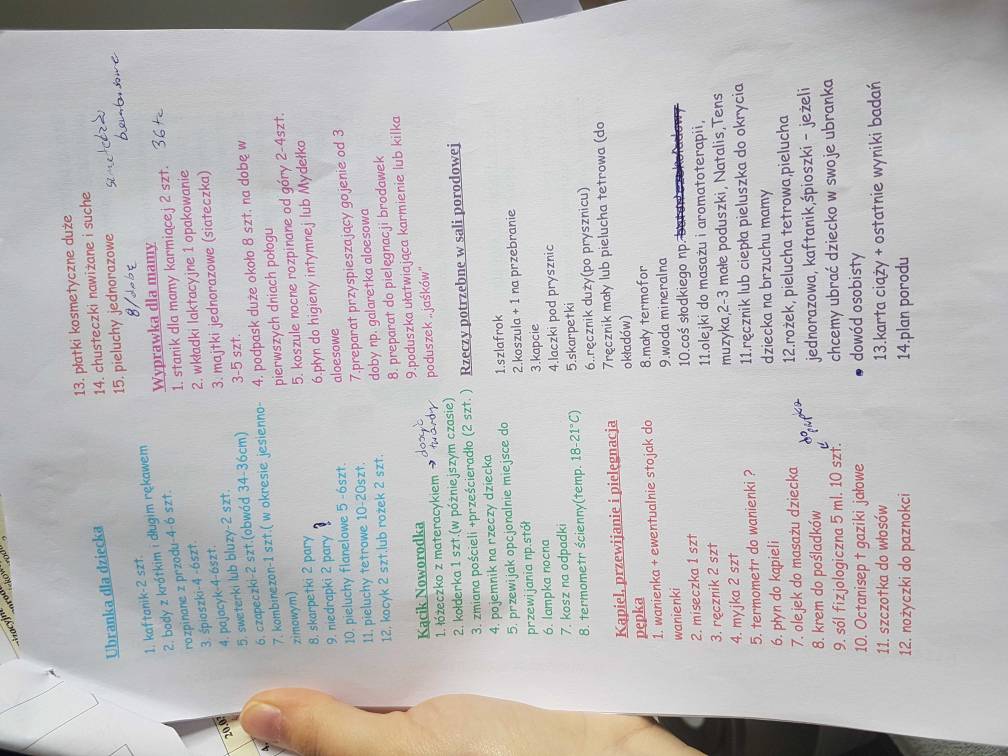 Ubranka dla dziecka
1. kaftanik-2 szt.
2. body z krótkim i długim rękawem
rozpinane z przodu-4-6 szt.
3. śpioszki-4-6szt.
4. pajacyk-4-6szt.
5. sweterki lub bluzy-2 szt.
6. czapeczki-2 szt.(obwód 34-36cm)
7. kombinezon-1 szt.( w okresie jesienno-
zimowym)
8. skarpetki 2 pary
9. niedrapki 2 pary ?
10. pieluchy flanelowe 5 -6szt.
11. pieluchy tetrowe 10-20szt.
12. kocyk 2 szt.lub rożek 2 szt.
Kącik Noworodka
1. łóżeczko z materacykiem → dosyć twardy
2. kołderka 1 szt.(w późniejszym czasie)
3. zmiana pościeli +prześcieradło (2 szt. )
4. pojemnik na rzeczy dziecka
5. przewijak opcjonalnie miejsce do
przewijania np.stół
6. lampka nocna
7. kosz na odpadki
8. termometr ścienny(temp. 18-21°C)
Kąpiel, przewijanie i pielęgnacja
pępka
1. wanienka + ewentualnie stojak do
wanienki
2. miseczka 1 szt
3. ręcznik 2 szt
4. myjka 2 szt
5. termometr do wanienki ?
6. płyn do kąpieli
7. olejek do masażu dziecka
8. krem do pośladków
do pępka
9. sól fizjologiczna 5 ml. 10 szt.
10. Octanisep i gaziki jałowe
11. szczotka do włosów
12. nożyczki do paznokci
13. płatki kosmetyczne duże
14. chusteczki nawilżane i suche
15. pieluchy jednorazowe
8/dobę
bambusowe
Wyprawka dla mamy
1. stanik dla mamy karmiącej 2 szt.
2. wkładki laktacyjne 1 opakowanie 36
3. majtki jednorazowe (siateczka)
3-5 szt.
4. podpaski duże około 8 szt. na dobę w
pierwszych dniach połogu
5. koszule nocne rozpinane od góry 2-4szt.
6.płyn do higieny intymnej lub Mydełko
aloesowe
7.preparat przyspieszający gojenie od 3
doby np. galaretka aloesowa
8. preparat do pielęgnacji brodawek
9.poduszka ułatwiająca karmienie lub kilka
poduszek „jaśków"
Rzeczy potrzebne w sali porodowej
1.szlafrok
2.koszula + 1 na przebranie
3.kapcie
4.laczki pod prysznic
5.skarpetki
6..ręcznik duży(po prysznicu)
7ręcznik mały lub pielucha tetrowa (do
okładów)
8.mały termofor
9.woda mineralna
10.coś słodkiego np.
11.olejki do masażu i aromatoterapii,
muzyka,2-3 małe poduszki, Natalis,Tens
11.ręcznik lub ciepła pieluszka do okrycia
dziecka na brzuchu mamy
12.rożek, pielucha tetrowa,pielucha
jednorazowa, kaftanik,śpioszki - jeżeli
chcemy ubrać dziecko w swoje ubranka
• dowód osobisty
13.karta ciąży + ostatnie wyniki badań
14.plan porodu